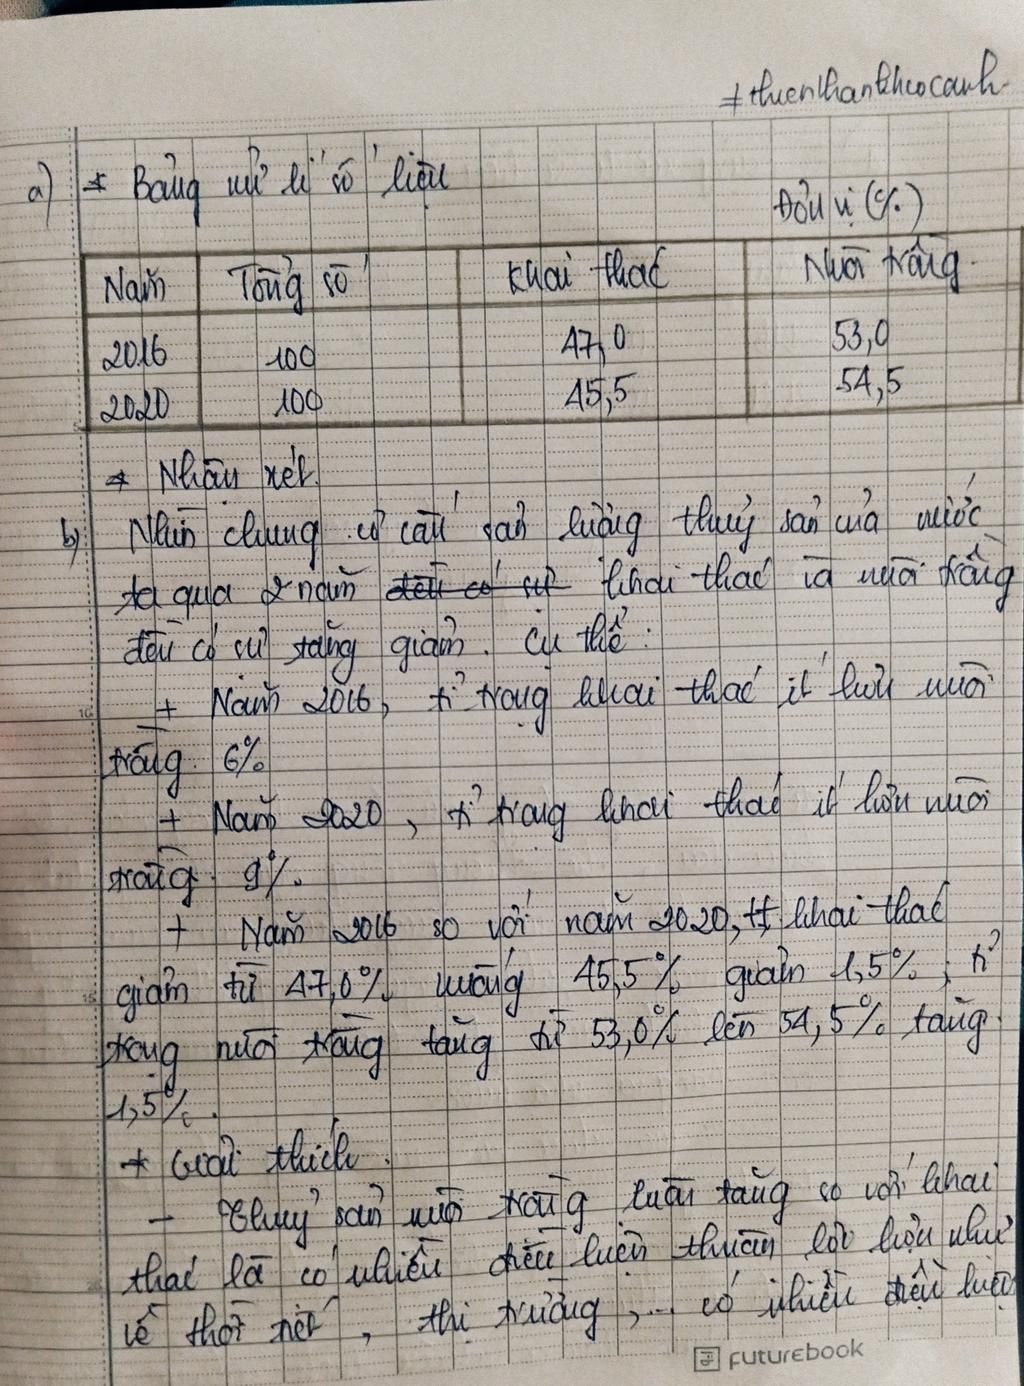 #thienthankheocanh
a) * Bảng xử lí số liệu
Đơn vị (%)
Năm Tổng số Khai thác Nuôi trồng
2016 100 47,0 53,0
2020 100 45,5 54,5
* Nhận xét
b) Nhìn chung cơ cấu sản lượng thuỷ sản của nước
ta qua 2 năm đều có sự khai thác và nuôi trồng
đều có sự tăng giảm. Cụ thể:
+ Năm 2016, tỉ trọng khai thác ít hơn nuôi
trồng 6%
+ Năm 2020, tỉ trọng khai thác ít hơn nuôi
trồng 9%.
+ Năm 2016 so với năm 2020, tt khai thác
giảm từ 47,0% xuống 45,5% giảm 1,5%; tỉ
trọng nuôi trồng tăng từ 53,0% lên 54,5% tăng
1,5%.
* Giải thích.
- Thuỷ sản nuôi trồng luôn tăng so với khai
thác là có nhiều điều kiện thuận lợi hơn như
về thời tiết, thị trường,... có nhiều điều kiện
FUTUREBOOK